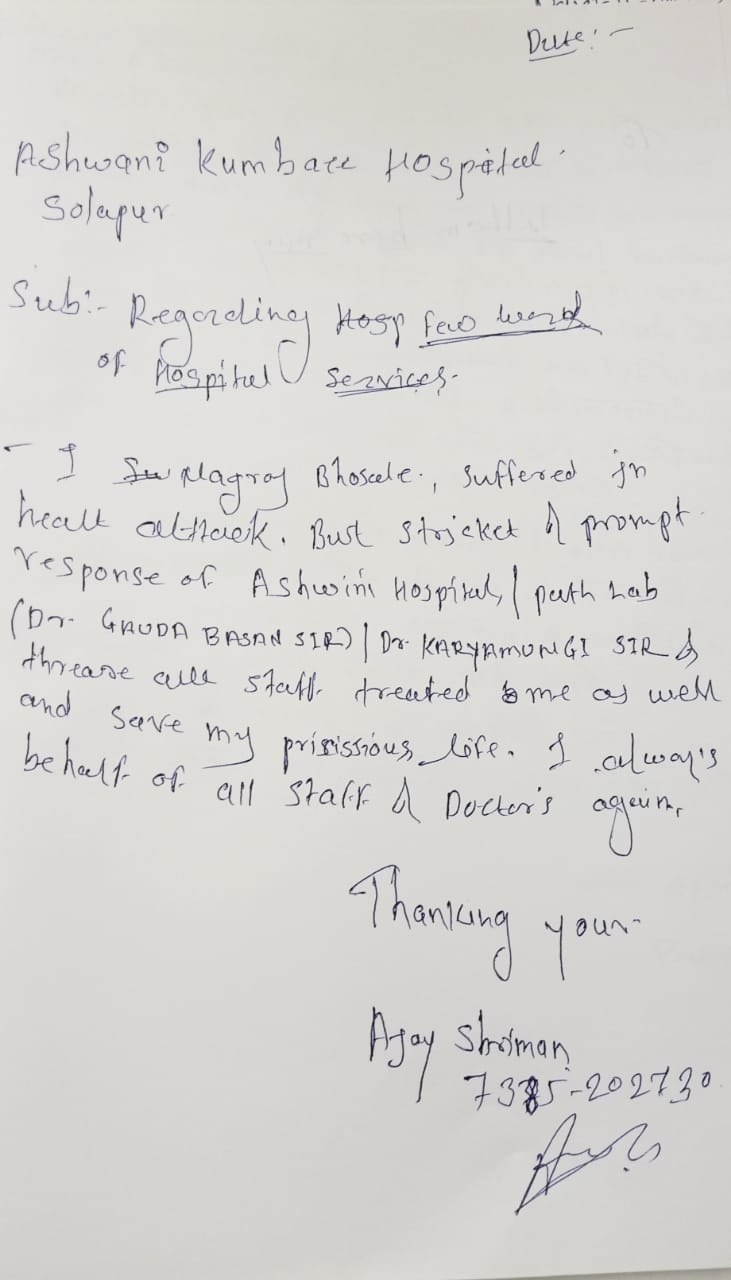 Date:-
Ashwani Kumbare Hospital.
Solapur
Sub:- Regarding Hosp few word
of Hospital Services.
- I Nagraj Bhosale., Suffered in
heatt attack. But & prompt
response of Ashwini Hospital, / path Lab
(Dr. GAUDA BASAN SIR) / Dr. KARYAMUNGI SIR &
all staff treated me as well
and save my prisissious life. I always
behalf of all staff & Doctor's again,
Thanking your
Ajay Shriman
7385-202730